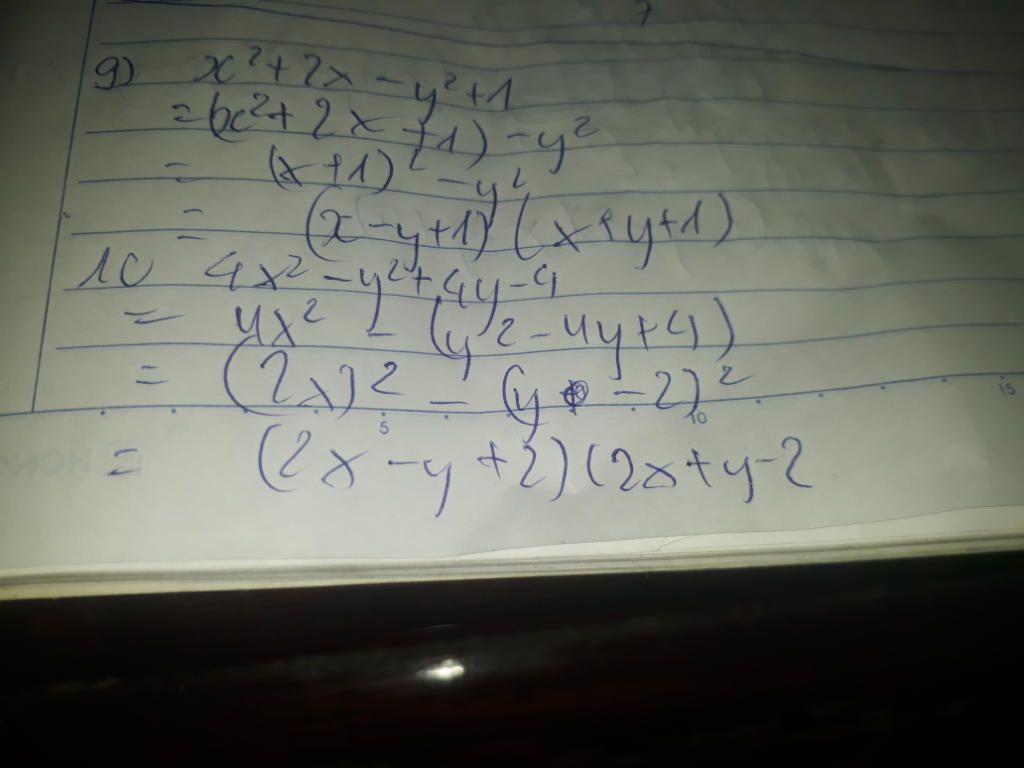 9) x²+2x-y²+1
=(x²+2x+1)-y²
= (x+1)²-y²
= (x-y+1)(x+y+1)
10 4x²-y²+4y-4
= 4x²-(y²-4y+4)
= (2x)²-(y-2)²
5 10 15
= (2x-y+2)(2x+y-2